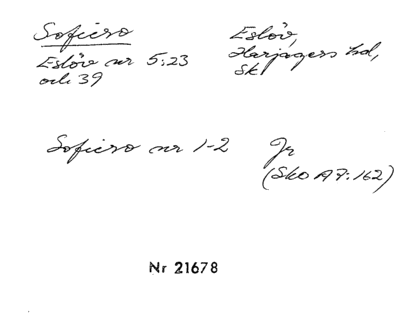 Sofiero
Eslöv nr 5:23
och 39
Eslöv,
Harjagers hd,
Sk
Sofiero nr 1-2 Jr
(SkO A7:162)
Nr 21678